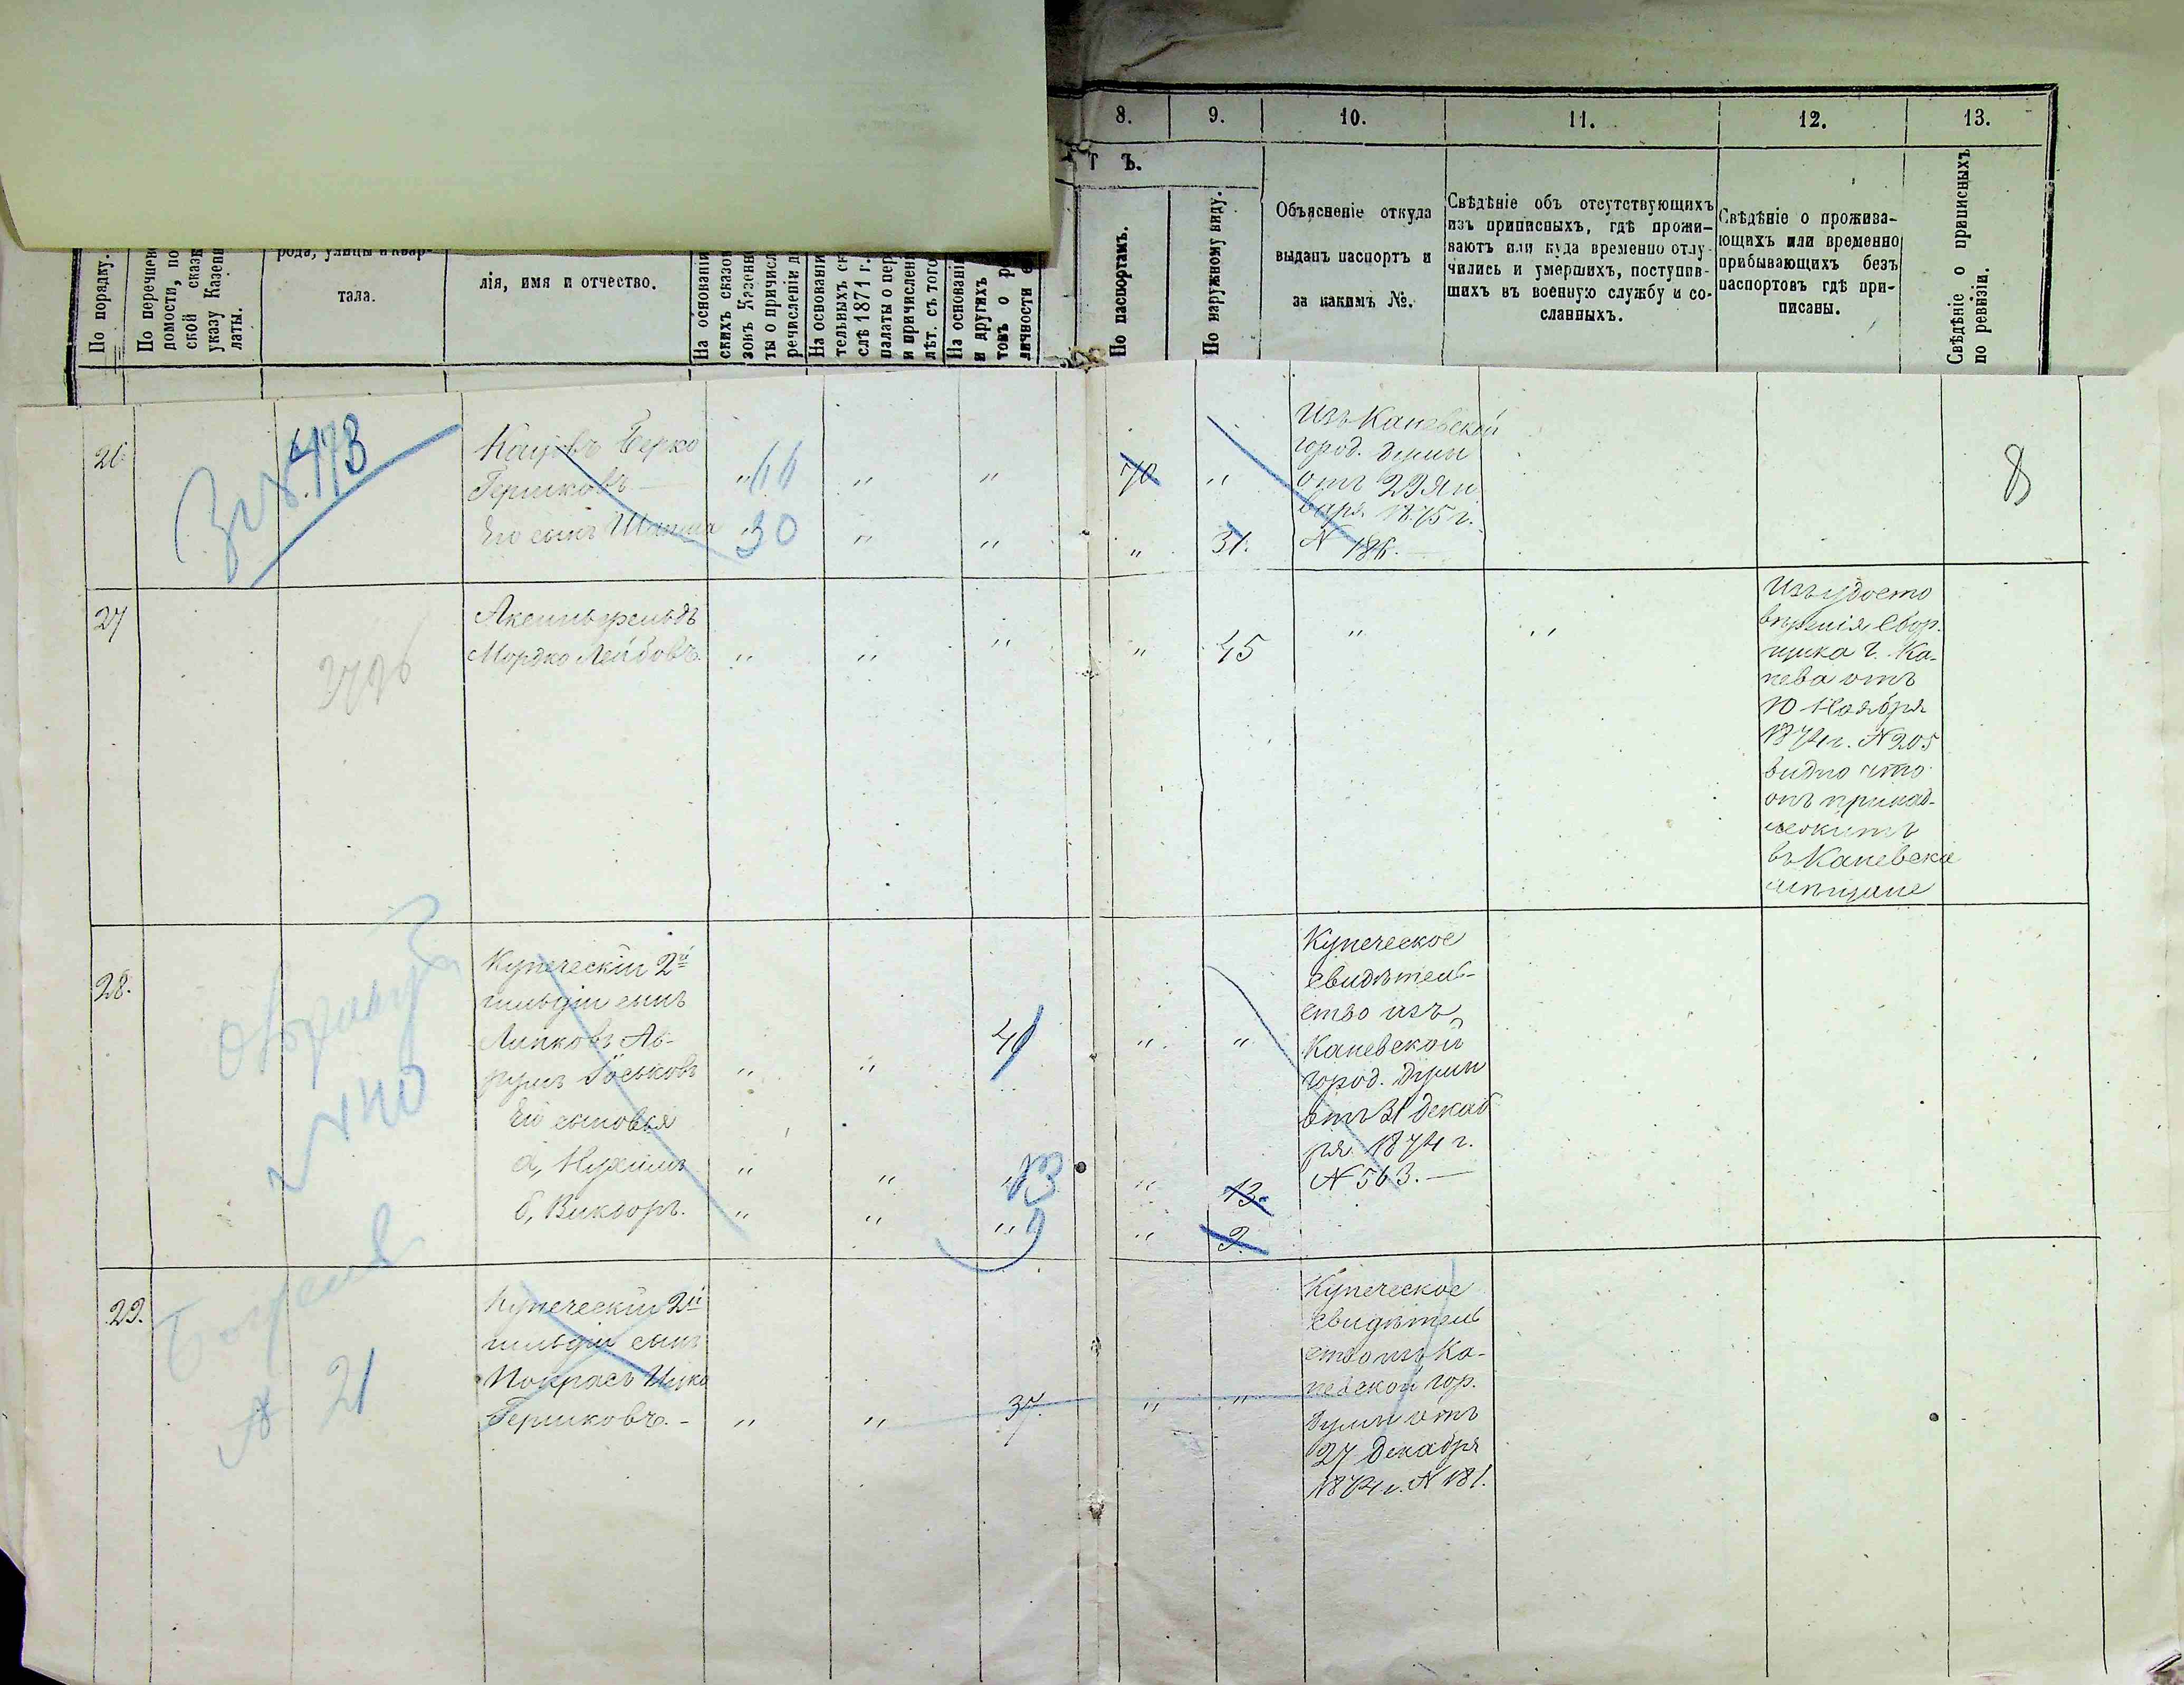 8.
9.
10.
11.
12.
13.
Т Ъ.
По порядку.
По перечнев
домости, по
ской сказк
указу Казенн
латы.
рода, улицы и квар-
тала.
лія, имя и отчество.
На основаніи
скихъ сказок
зокъ Казенн
ты о причисл
речисленіи д
На основаніи
тельныхъ с
слѣ 1871 г.
палаты о пер
и причислені
лѣт. съ того
На основані
и другихъ
товъ о р
личности е
По паспортамъ.
По наружному виду.
Объясненіе откуда
выданъ паспортъ и
за какимъ №.
Свѣдѣніе объ отсутствующихъ
изъ приписныхъ, гдѣ прожи-
ваютъ или куда временно отлу-
чились и умершихъ, поступив-
шихъ въ военную службу и со-
сланныхъ.
Свѣдѣніе о прожива-
ющихъ или временно
прибывающихъ безъ
паспортовъ гдѣ при-
писаны.
Свѣдѣніе о приписныхъ
по ревизіи.
26.
№ 473
Берко
Гершковъ
Его сынъ Шапша
" 44 " " 70 "
" 30 " " " 31.
Изъ Каневской
город. думы
отъ 29 Ян
варя 1875 г.
N 186.
8
27
3726
Мордко Лейбовъ.
" " " " 45 " "
Изъ удосто
вѣренія Сбор.
щика г. Ка-
нева отъ
10 Ноября
1874 г. N 205
видно что
онъ принад-
лежитъ
въ Каневскіе
мѣщане
28.
N 40
Купеческій 2й
гильдіи сынъ
Липковъ Аб-
румъ Іоськовъ
" " 40 " "
Его сыновья
а, Нухимъ " " " 13 " 13.
б, Викторъ. " " " 9 " 9.
Купеческое
свидѣтель-
ство изъ
Каневской
город. думы
отъ 31 декаб
ря 1874 г.
N 563.
29.
N 21
Купеческій 2й
гильдіи сынъ
Покрасъ Ицко
Гершковъ. - " " 37. " "
Купеческое
свидѣтель
ство изъ Ка-
невской гор.
думы отъ
27 Декабря
1874 г. N 181.